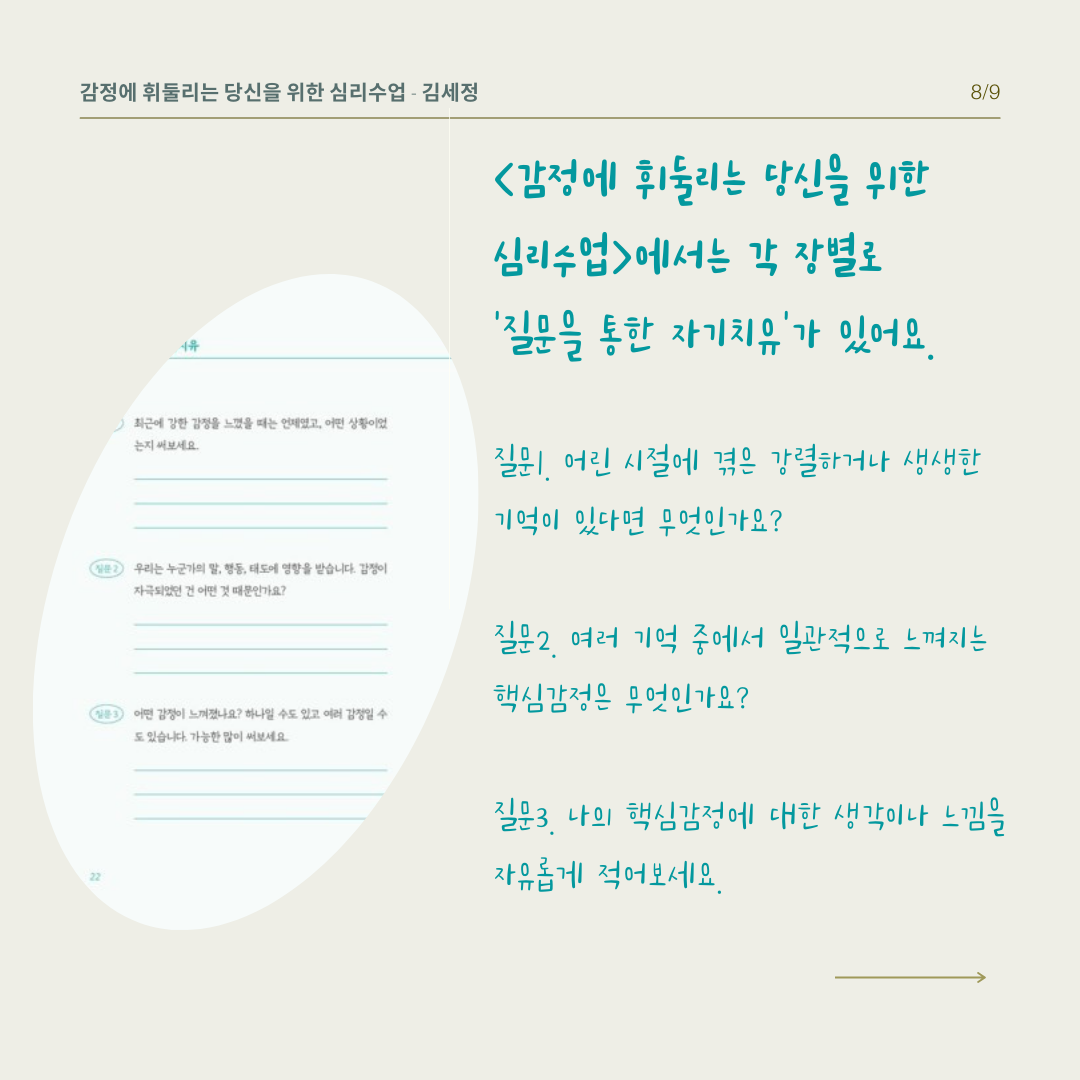 감정에 휘둘리는 당신을 위한 심리수업 - 김세정
8/9
<감정에 휘둘리는 당신을 위한
심리수업>에서는 각 장별로
'질문을 통한 자기치유'가 있어요.
질문1. 어린 시절에 겪은 강렬하거나 생생한
기억이 있다면 무엇인가요?
질문2. 여러 기억 중에서 일관적으로 느껴지는
핵심감정은 무엇인가요?
질문3. 나의 핵심감정에 대한 생각이나 느낌을
자유롭게 적어보세요.
치유
최근에 강한 감정을 느꼈을 때는 언제였고, 어떤 상황이었
는지 써보세요.
질문 2
우리는 누군가의 말, 행동, 태도에 영향을 받습니다. 감정이
자극되었던 건 어떤 것 때문인가요?
질문 3
어떤 감정이 느껴졌나요? 하나일 수도 있고 여러 감정일 수
도 있습니다. 가능한 많이 써보세요.
22